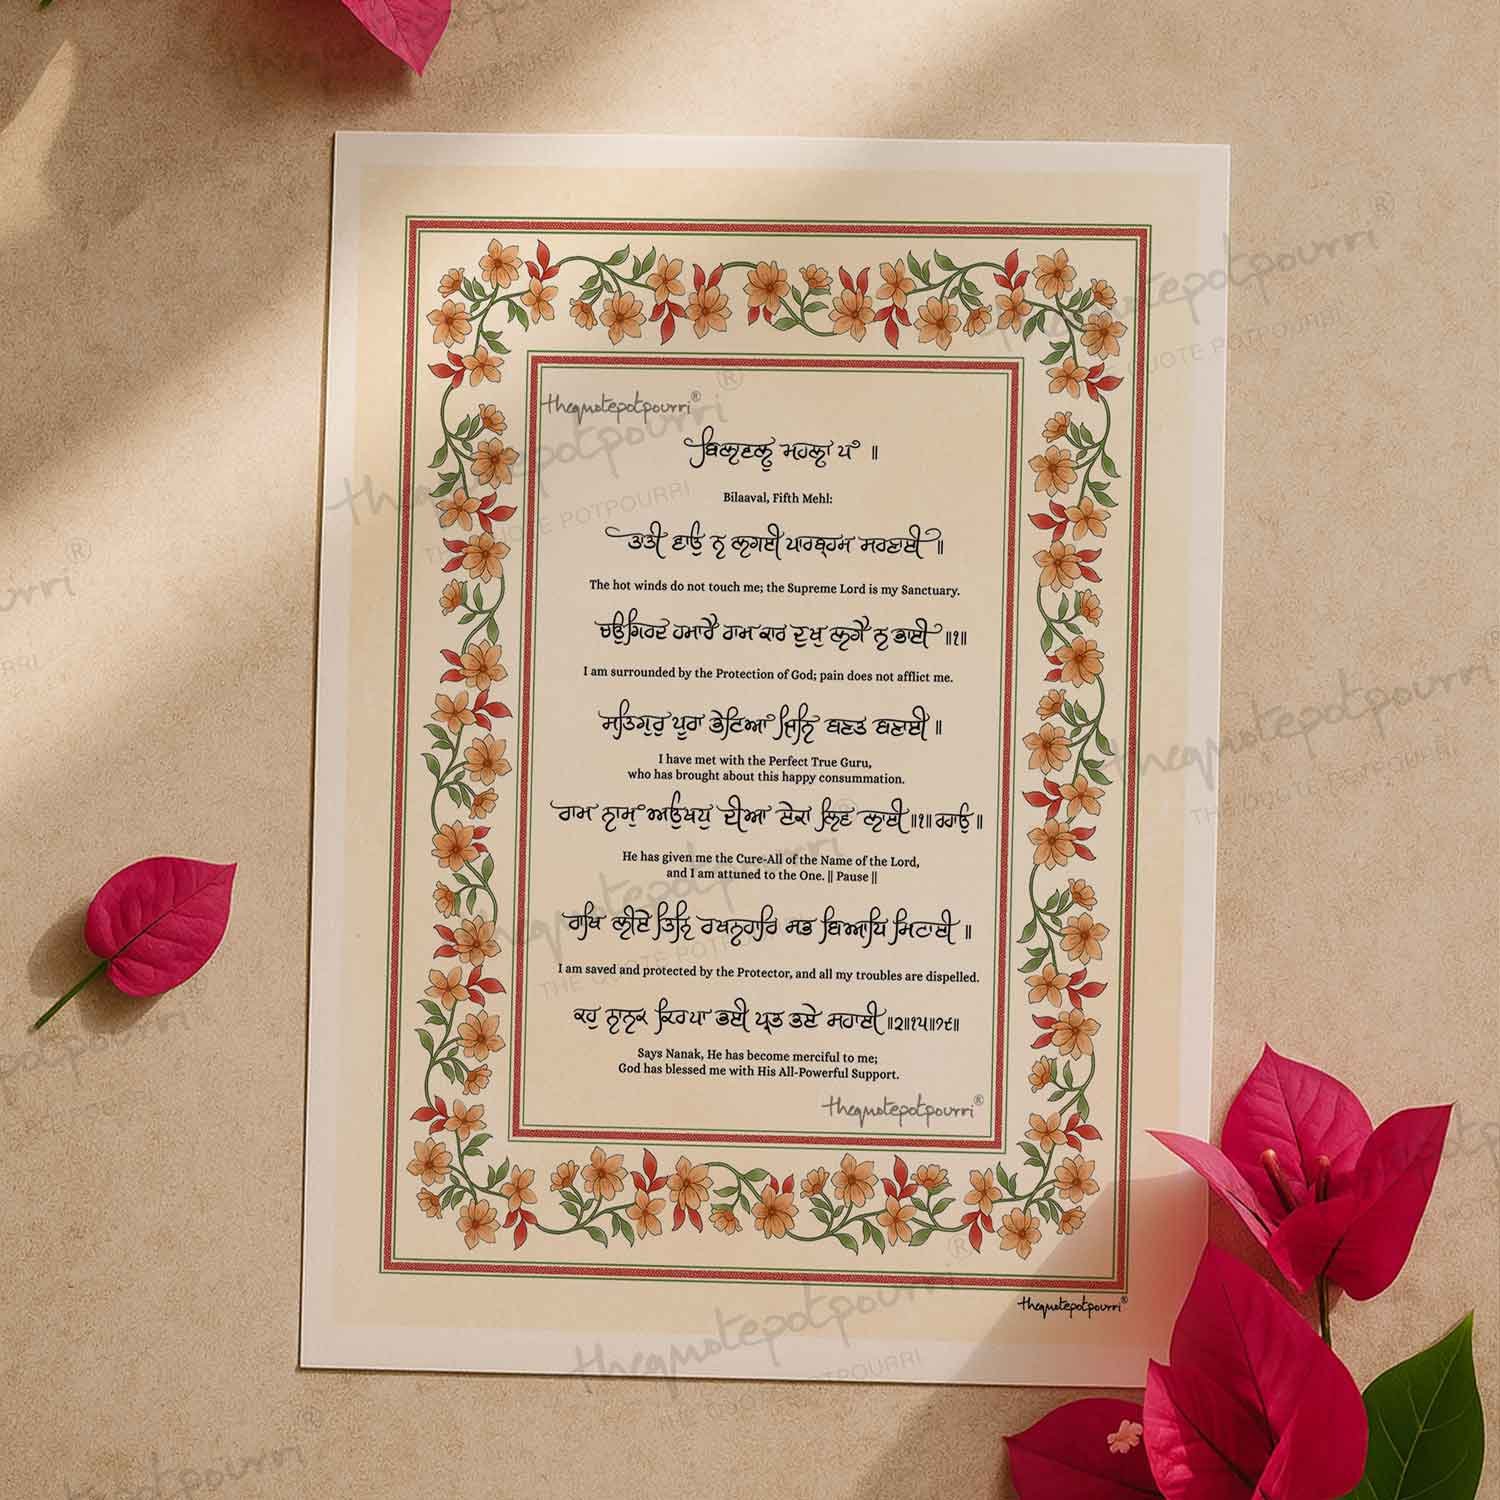 thequotepotpourri®
ਬਿਲਾਵਲੁ ਮਹਲਾ ਪੰ ॥
Bilaaval, Fifth Mehl:
ਤਾਤੀ ਵਾਉ ਨ ਲਗਈ ਪਾਰਬ੍ਰਹਮ ਸਰਣਾਈ ॥
The hot winds do not touch me; the Supreme Lord is my Sanctuary.
ਚਉਗਿਰਦ ਹਮਾਰੈ ਰਾਮ ਕਾਰ ਦੁਖੁ ਲਗੈ ਨ ਭਾਈ ॥੧॥
I am surrounded by the Protection of God; pain does not afflict me.
ਸਤਿਗੁਰੁ ਪੂਰਾ ਭੇਟਿਆ ਜਿਨਿ ਬਣਤ ਬਣਾਈ ॥
I have met with the Perfect True Guru,
who has brought about this happy consummation.
ਰਾਮ ਨਾਮੁ ਅਉਖਧੁ ਦੀਆ ਏਕਾ ਲਿਵ ਲਾਈ ॥੧॥ ਰਹਾਉ ॥
He has given me the Cure-All of the Name of the Lord,
and I am attuned to the One. || Pause ||
ਰਾਖਿ ਲੀਏ ਤਿਨਿ ਰਖਨਹਾਰਿ ਸਭ ਬਿਆਧਿ ਮਿਟਾਈ ॥
I am saved and protected by the Protector, and all my troubles are dispelled.
ਕਹੁ ਨਾਨਕ ਕਿਰਪਾ ਭਈ ਪ੍ਰਭ ਭਏ ਸਹਾਈ ॥੨॥੧੫॥੭੯॥
Says Nanak, He has become merciful to me;
God has blessed me with His All-Powerful Support.
thequotepotpourri®
thequotepotpourri®